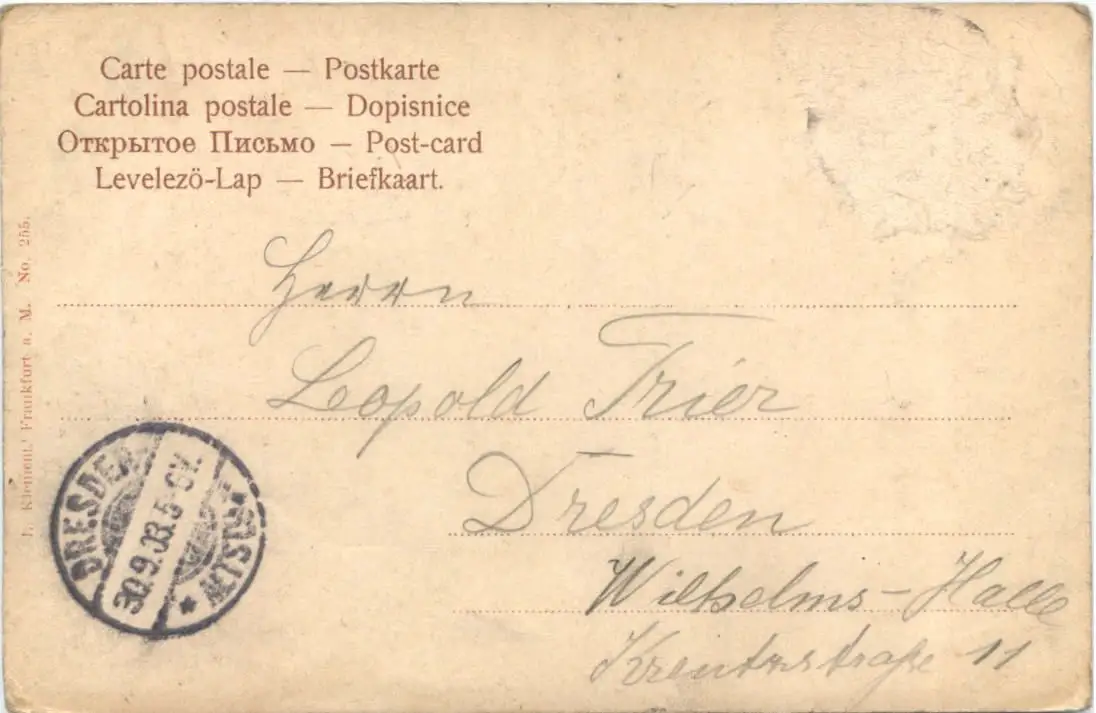 Carte postale — Postkarte
Cartolina postale — Dopisnice
Открытое Письмо — Post-card
Levelezö-Lap — Briefkaart.
Klement, Frankfurt a. M. No. 255.
Herrn
Leopold Trier
Dresden
Wilhelms-Halle
11
DRESDEN ALTST.
30.9.03.5-6V.